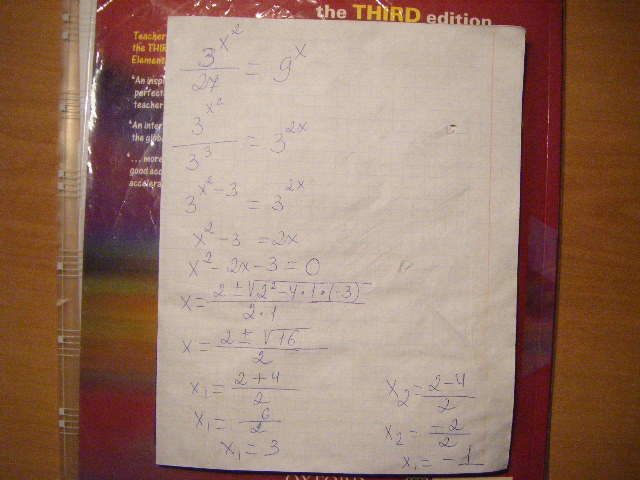 the THIRD edition
Teacher
the THIR
Element
"An insp
perfect
teacher
"An inter
the globa
"... more
good acc
accelera
3^x^2 / 27 = 9^x
3^x^2 / 3^3 = 3^2x
3^x^2-3 = 3^2x
x^2 - 3 = 2x
x^2 - 2x - 3 = 0
x = 2 ± √2^2 - 4·1·(-3) / 2·1
x = 2 ± √16 / 2
x1 = 2+4 / 2
x1 = 6 / 2
x1 = 3
x2 = 2-4 / 2
x2 = -2 / 2
x1 = -1
OXFORD